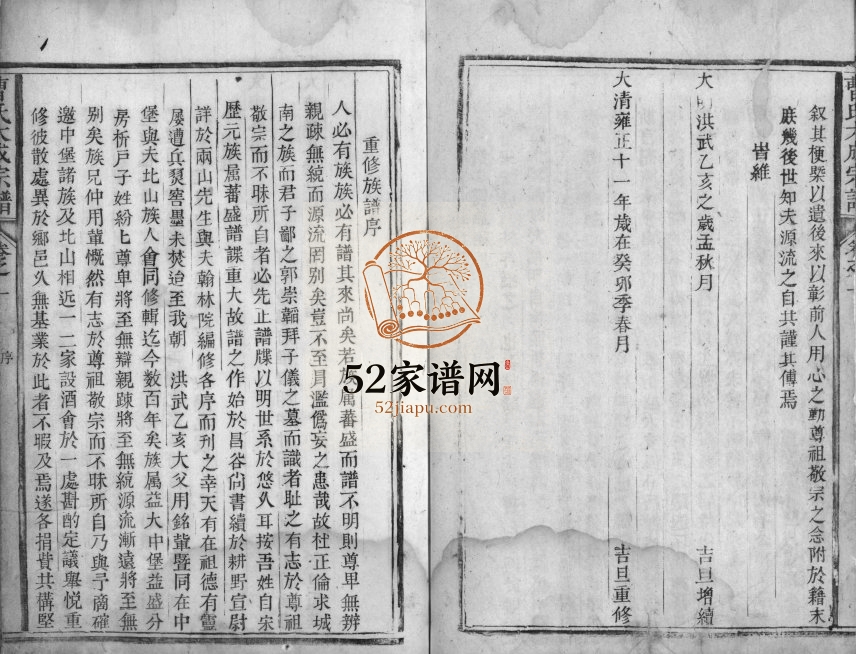 叙其梗槩以遺後來以彰前人用心之勤尊祖敬宗之念附於籍末
庶幾後世知夫源流之自共謹其傳焉
旹維
大明洪武乙亥之歲孟秋月 吉旦增續
大清雍正十一年歲在癸卯季春月 吉旦重修
重修族譜序
人必有族族必有譜其來尚矣若族属蕃盛而譜不明則尊卑無辨
親疎無統而源流罔别矣豈不至月濫僞妄之患哉故杜正倫求城
南之族而君子鄙之郭崇韜拜子儀之墓而識者耻之有志於尊祖
敬宗而不昧所自者必先止譜牒以明世系於悠久耳按吾姓自宋
歷元族屬蕃盛譜諜重大故譜之作始於昌谷尚書續於耕野宣尉
詳於兩山先生與夫翰林院編修各序而刋之幸天有在祖德有靈
屢遭兵燹寄墨未焚迨至我朝 洪武乙亥大父用銘軰暨同在中
堡與夫北山族人會同修輯迄今数百年矣族属益大中堡益盛分
房析戸子姓紛匕尊卑將至無辯親踈將至無統源流漸遠將至無
别矣族兄仲用軰慨然有志於尊祖敬宗而不昧所自乃與予商確
邀中堡諸族及北山相近一二家設酒會於一處斟酌定議舉悦重
修彼散處異於鄉邑久無基業於此者不暇及焉遂各捐費共搆堅
曹氏大成宗譜 卷之一 序
曹氏大成宗譜
52家谱网
52jiapu.com